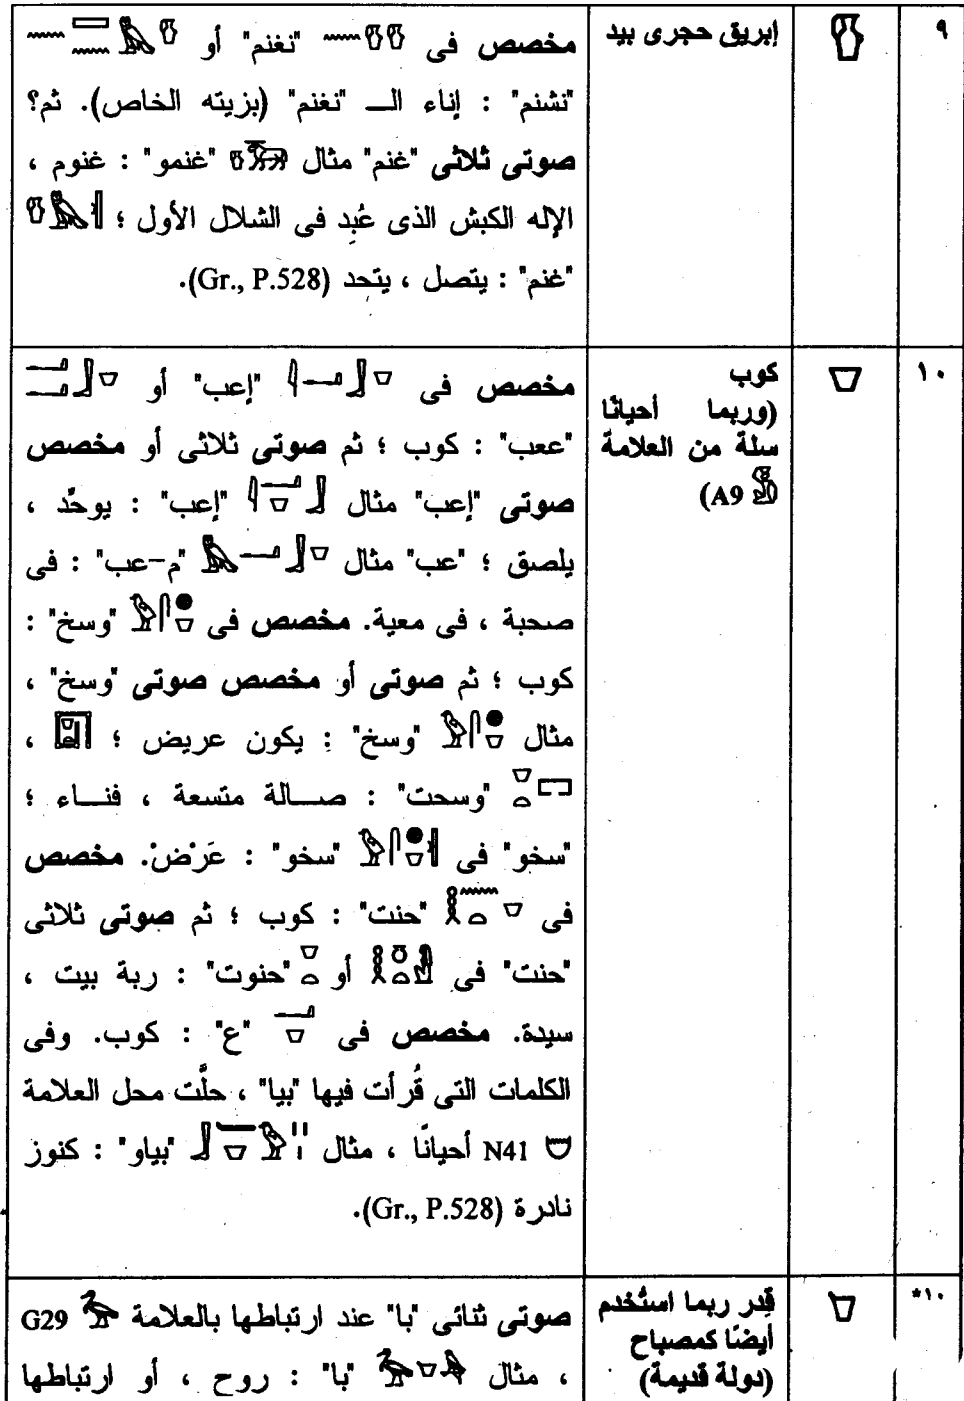 ٩
إبريق حجرى بيد
مخصص فى "نغنم" أو
"نشنم" : إناء الـــ "نغنم" (بزيته الخاص). ثم؟
صوتى ثلاثى "غنم" مثال "غنمو" : غنوم ،
الإله الكبش الذى عُبِد فى الشلال الأول ؛
"غنم" : يتصل ، يتحد (Gr., P.528).
١٠
كوب
(وربما أحيانًا
سلة من العلامة
A9)
مخصص فى "إعب" أو
"ععب" : كوب ؛ ثم صوتى ثلاثى أو مخصص
صوتى "إعب" مثال "إعب" : يوحَّد ،
يلصق ؛ "عب" مثال "م-عب" : فى
صحبة ، فى معية. مخصص فى "وسخ" :
كوب ؛ ثم صوتى أو مخصص صوتى "وسخ" ،
مثال "وسخ" : يكون عريض ؛ ،
"وسحت" : صـــالة متسعة ، فنـــاء ؛
"سخو" فى "سخو" : عَرْضْ. مخصص
فى "حنت" : كوب ؛ ثم صوتى ثلاثى
"حنت" فى أو "حنوت" : ربة بيت ،
سيدة. مخصص فى "ع" : كوب. وفى
الكلمات التى قُرأت فيها "بيا" ، حلَّت محل العلامة
N41 أحيانًا ، مثال "بياو" : كنوز
نادرة (Gr., P.528).
*١٠
قِدر ربما استُخدم
أيضًا كمصباح
(دولة قديمة)
صوتى ثنائى "با" عند ارتباطها بالعلامة G29
، مثال "با" : روح ، أو ارتباطها